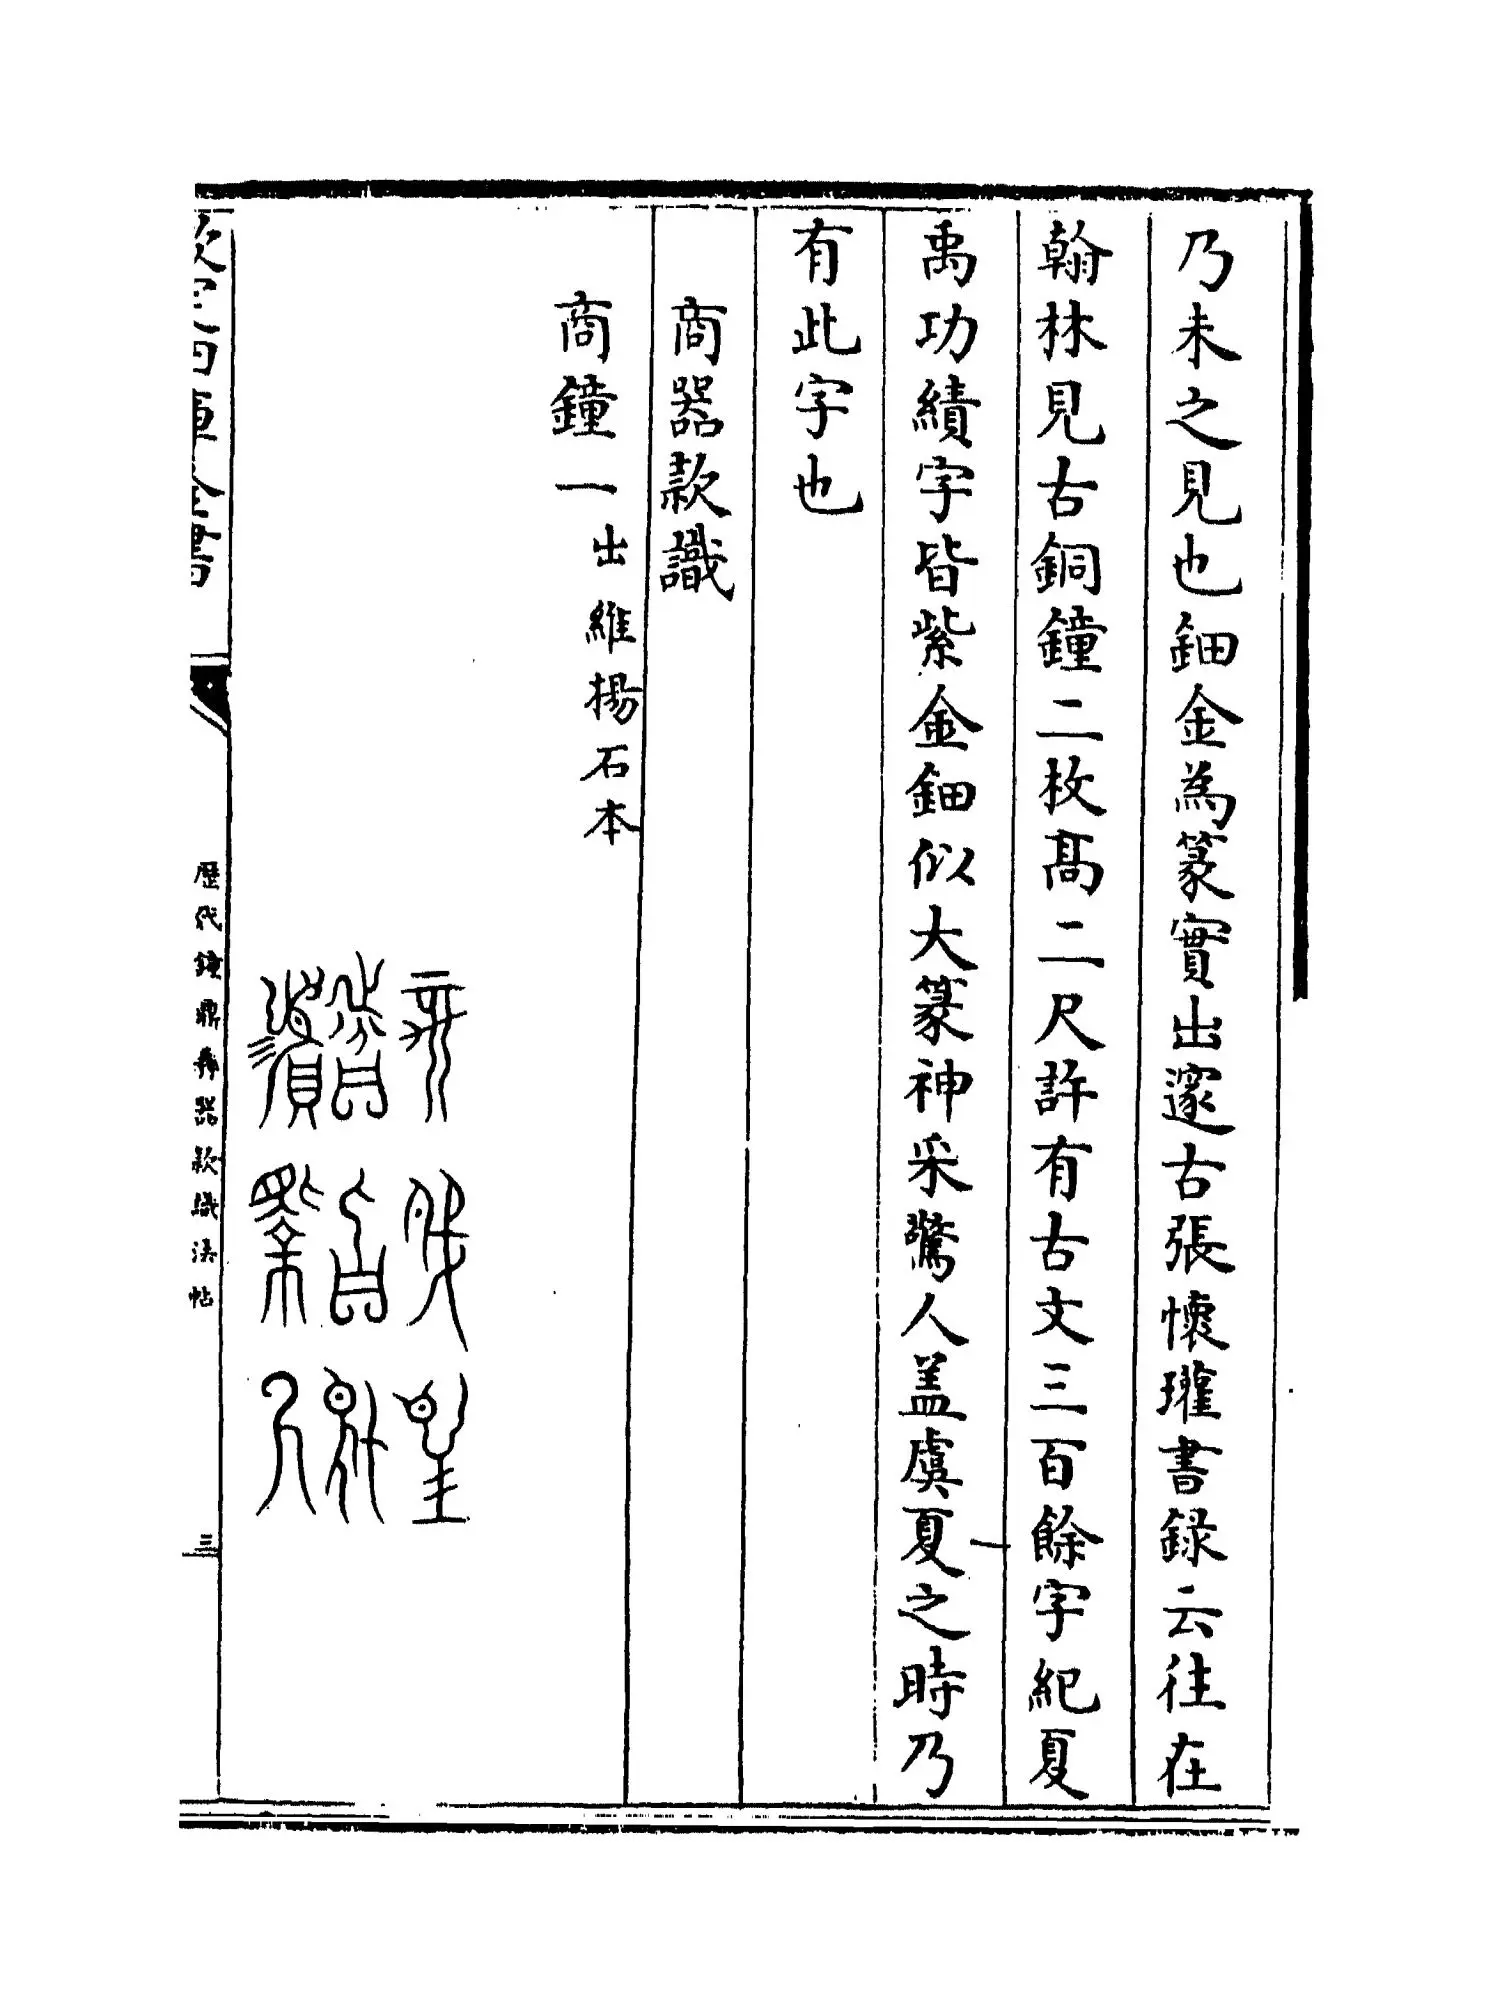 乃未之見也鈿金為篆實出邃古張懷瓘書録云往在
翰林見古銅鐘二枚髙二尺許有古文三百餘字紀夏
禹功績字皆紫金鈿似大篆神采驚人盖虞夏之時乃
有此字也
商器款識
商鐘一出維揚石本
欽定四庫全書
歴代鐘鼎彝器款識法帖
三